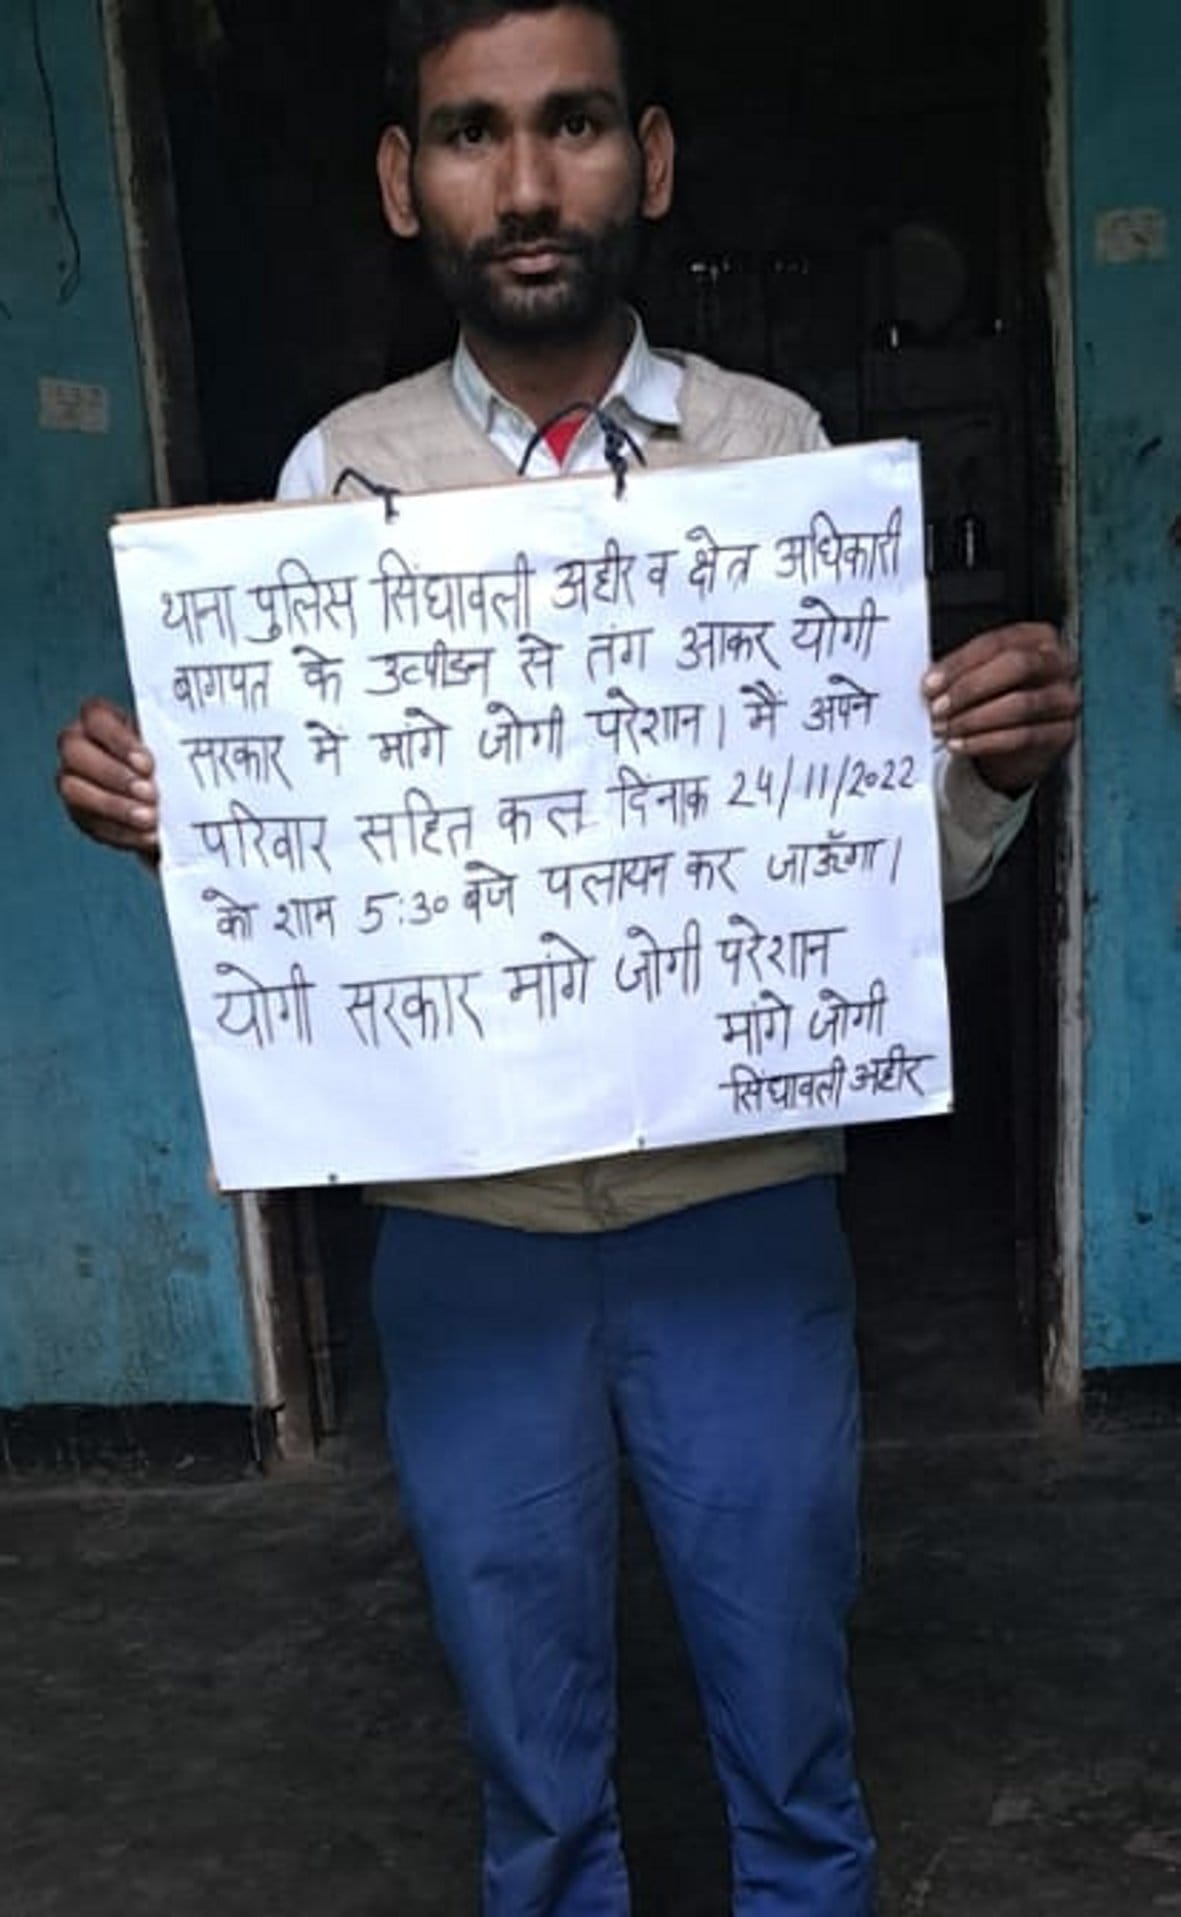 थाना पुलिस सिंघावली अहीर व क्षेत्र अधिकारी
बागपत के उत्पीडन से तंग आकर योगी
सरकार में मांगे जोगी परेशान। मैं अपने
परिवार सहित कल दिनाक 24/11/2022
को शाम 5:30 बजे पलायन कर जाऊँगा।
योगी सरकार मांगे जोगी परेशान
मांगे जोगी
सिंघावली अहीर